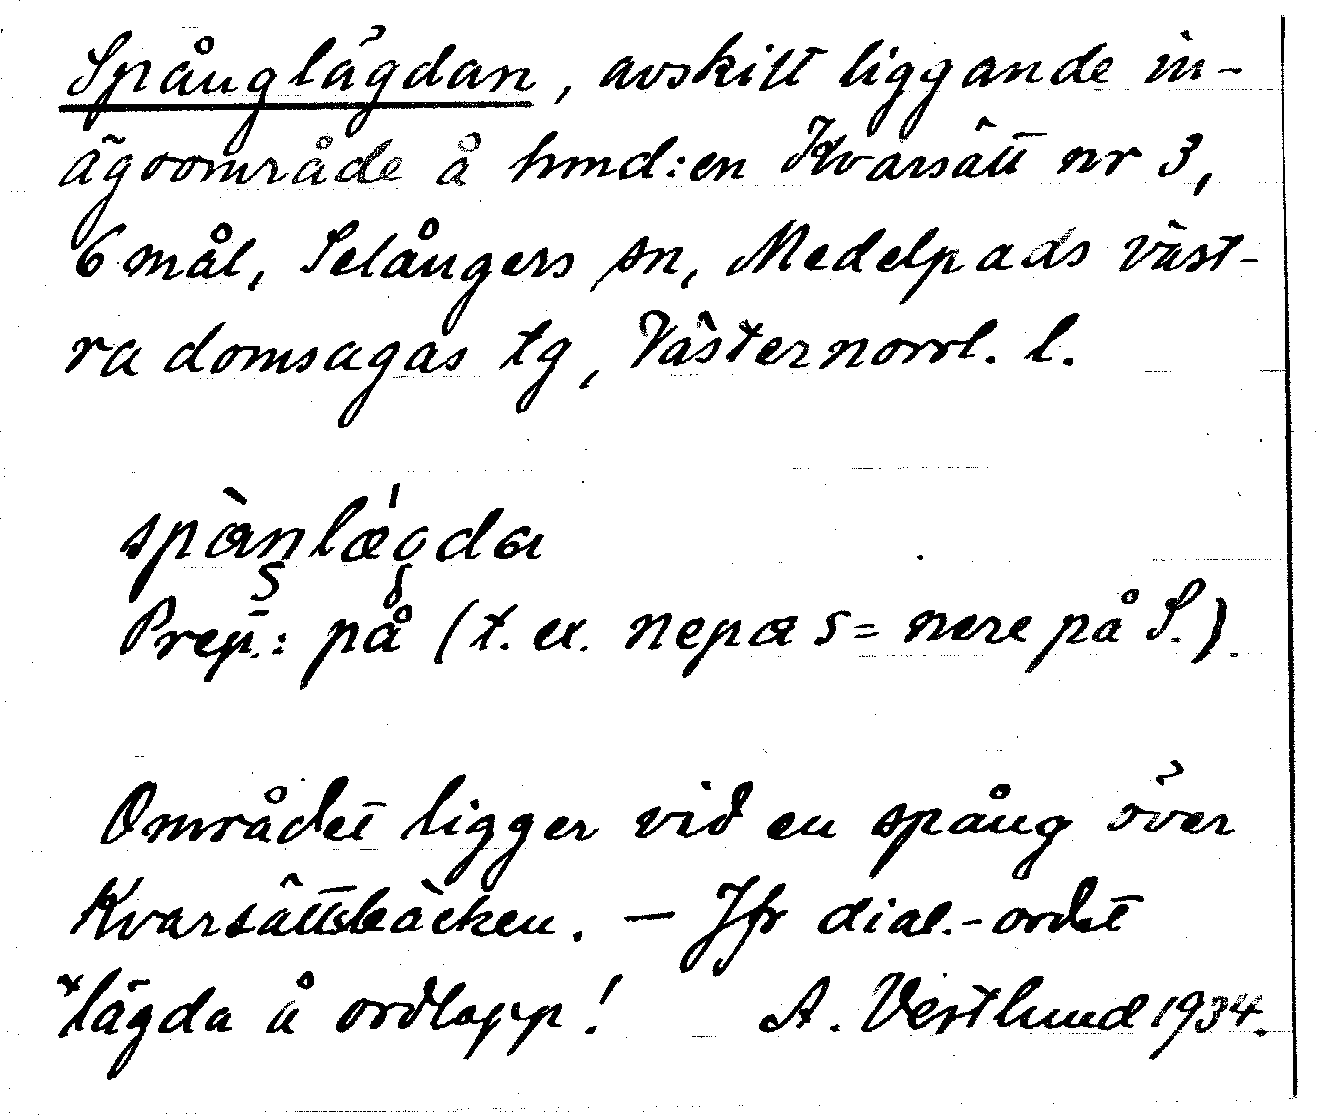 Spånglägdan, avskilt liggande in-
ägoområde å hmd:en Kvarsätt nr 3,
6 mål, Selångers sn, Medelpads väst-
ra domsagas tg, Västernorrl. l.
Prep.: på (t. ex. nepa S = nere på S.)
Området ligger vid en spång över
Kvarsättsbäcken. – Jfr dial.-ordet
*lägda å ordlapp! A. Vestlund 1934.